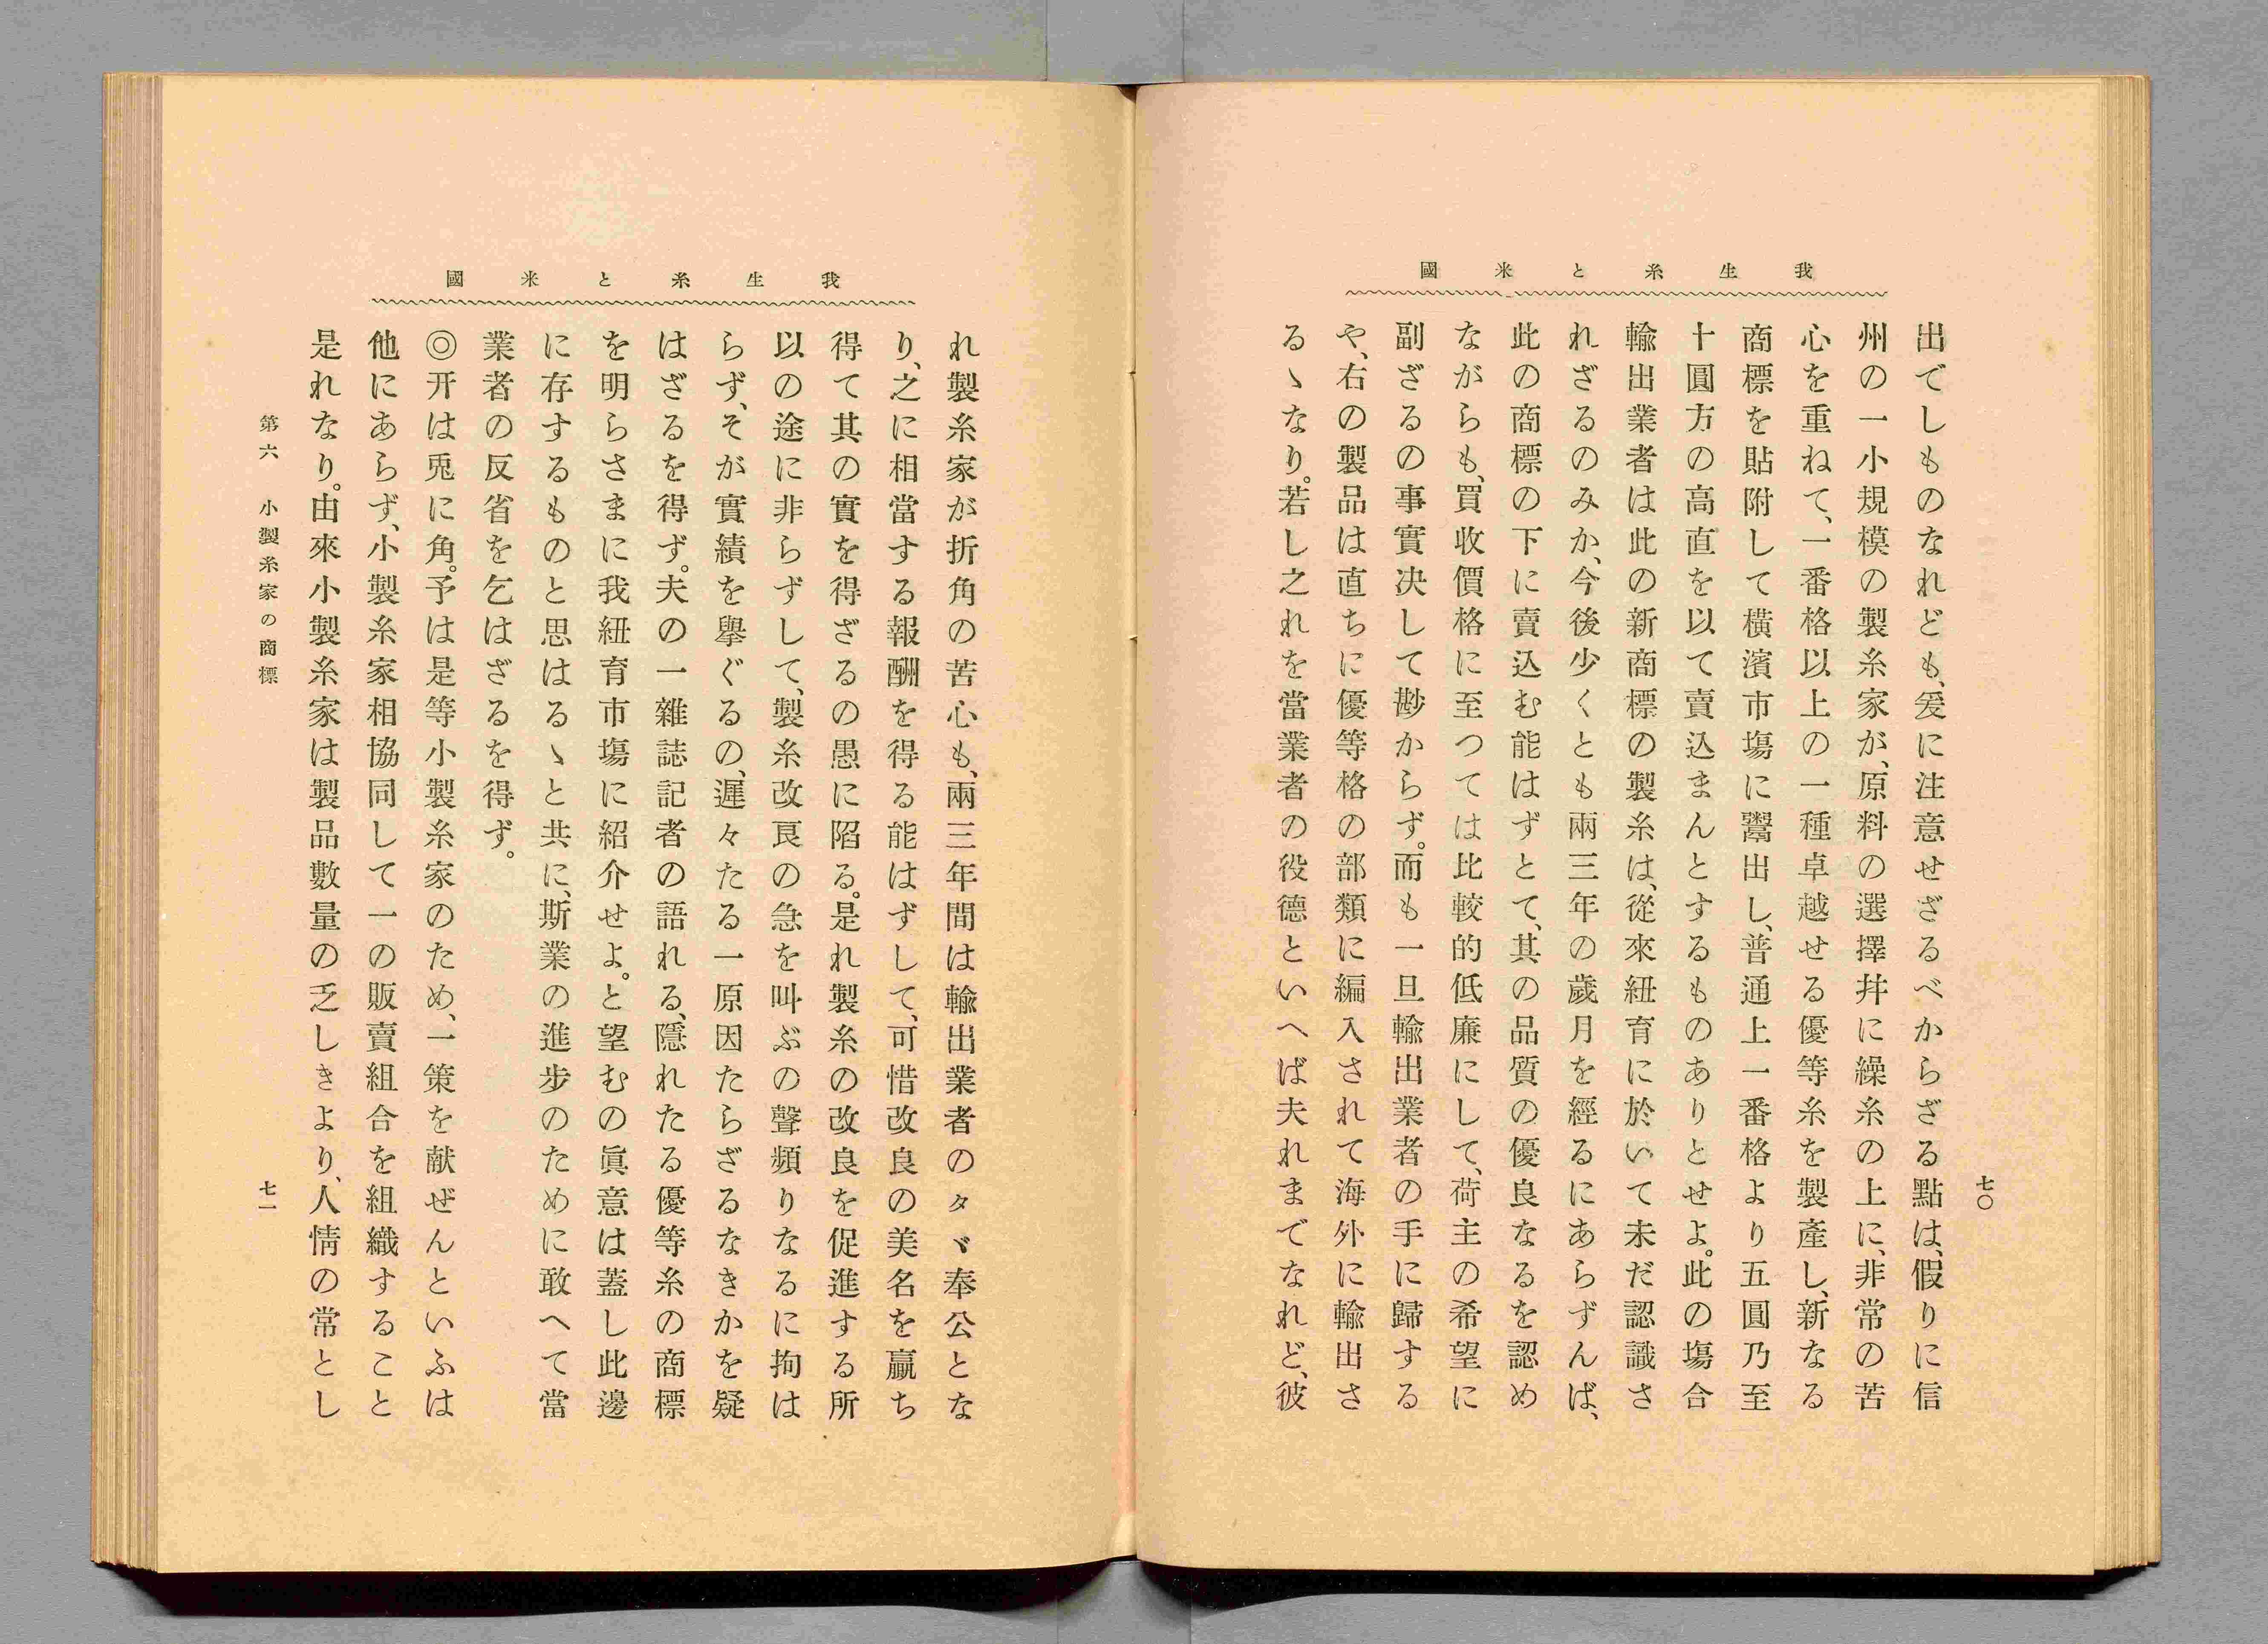 我生糸と米國
七〇
出でしものなれども、爰に注意せざるべからざる點は、假りに信
州の一小規模の製糸家が、原料の選擇幷に繰糸の上に、非常の苦
心を重ねて、一番格以上の一種卓越せる優等糸を製產し、新なる
商標を貼附して橫濱市塲に鬻出し、普通上一番格より五圓乃至
十圓方の高直を以て賣込まんとするものありとせよ。此の塲合
輸出業者は此の新商標の製糸は、從來紐育に於いて未だ認識さ
れざるのみか、今後少くとも兩三年の歲月を經るにあらずんば、
此の商標の下に賣込む能はずとて、其の品質の優良なるを認め
ながらも、買收價格に至つては比較的低廉にして、荷主の希望に
副ざるの事實决して尠からず。而も一旦輸出業者の手に歸する
や、右の製品は直ちに優等格の部類に編入されて海外に輸出さ
るゝなり。若し之れを當業者の役德といへば夫れまでなれど、彼
我生糸と米國
れ製糸家が折角の苦心も、兩三年間は輸出業者のタヾ奉公とな
り、之に相當する報酬を得る能はずして、可惜改良の美名を贏ち
得て其の實を得ざるの愚に陷る。是れ製糸の改良を促進する所
以の途に非らずして、製糸改良の急を叫ぶの聲頻りなるに拘は
らず、そが實績を擧ぐるの、遲々たる一原因たらざるなきかを疑
はざるを得ず。夫の一雜誌記者の語れる、隱れたる優等糸の商標
を明らさまに我紐育市塲に紹介せよ。と望むの眞意は蓋し此邊
に存するものと思はるゝと共に、斯業の進步のために敢へて當
業者の反省を乞はざるを得ず。
◎开は兎に角。予は是等小製糸家のため、一策を献ぜんといふは
他にあらず、小製糸家相協同して一の販賣組合を組織すること
是れなり。由來小製糸家は製品數量の乏しきより、人情の常とし
第六 小製糸家の商標
七一